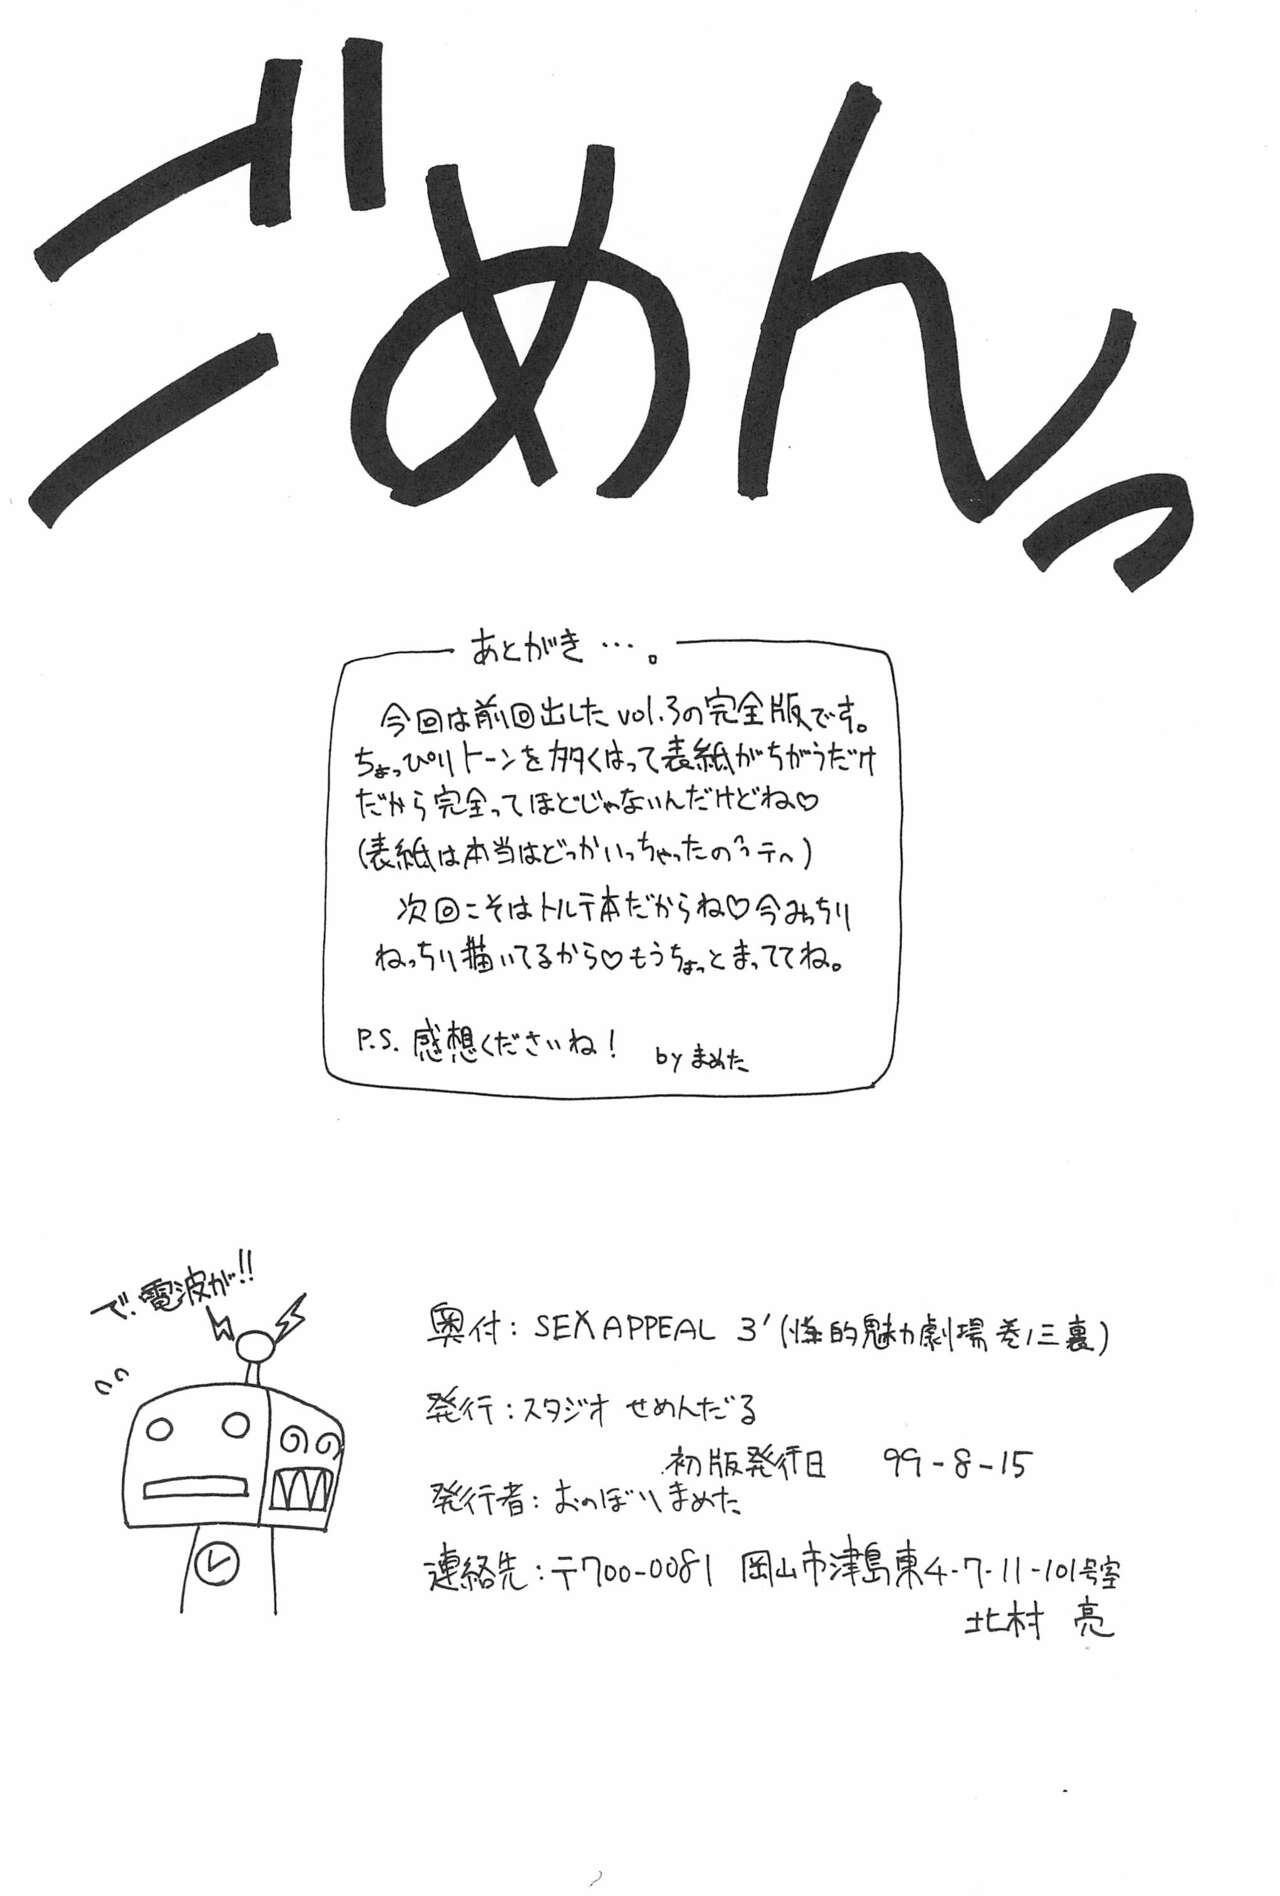 ごめんっ
あとがき…。
今回は前回出したvol.3の完全版です。
ちょっぴりトーンを多くはって表紙がちがうだけ
だから完全ってほどじゃないんだけどね♡
(表紙は本当はどっかいっちゃったの テヘ)
次回こそはトルテ本だからね♡今みっちり
ねっちり描いてるから♡もうちょっとまっててね。
P.S. 感想くださいね！
by まめた
で、電波が!!
奥付：SEX APPEAL 3'(性的魅力劇場 巻ノ三裏)
発行：スタジオ せめんだる
初版発行日 99-8-15
発行者：おのぼりまめた
連絡先：〒700-0081 岡山市津島東4-7-11-101号室
北村 亮